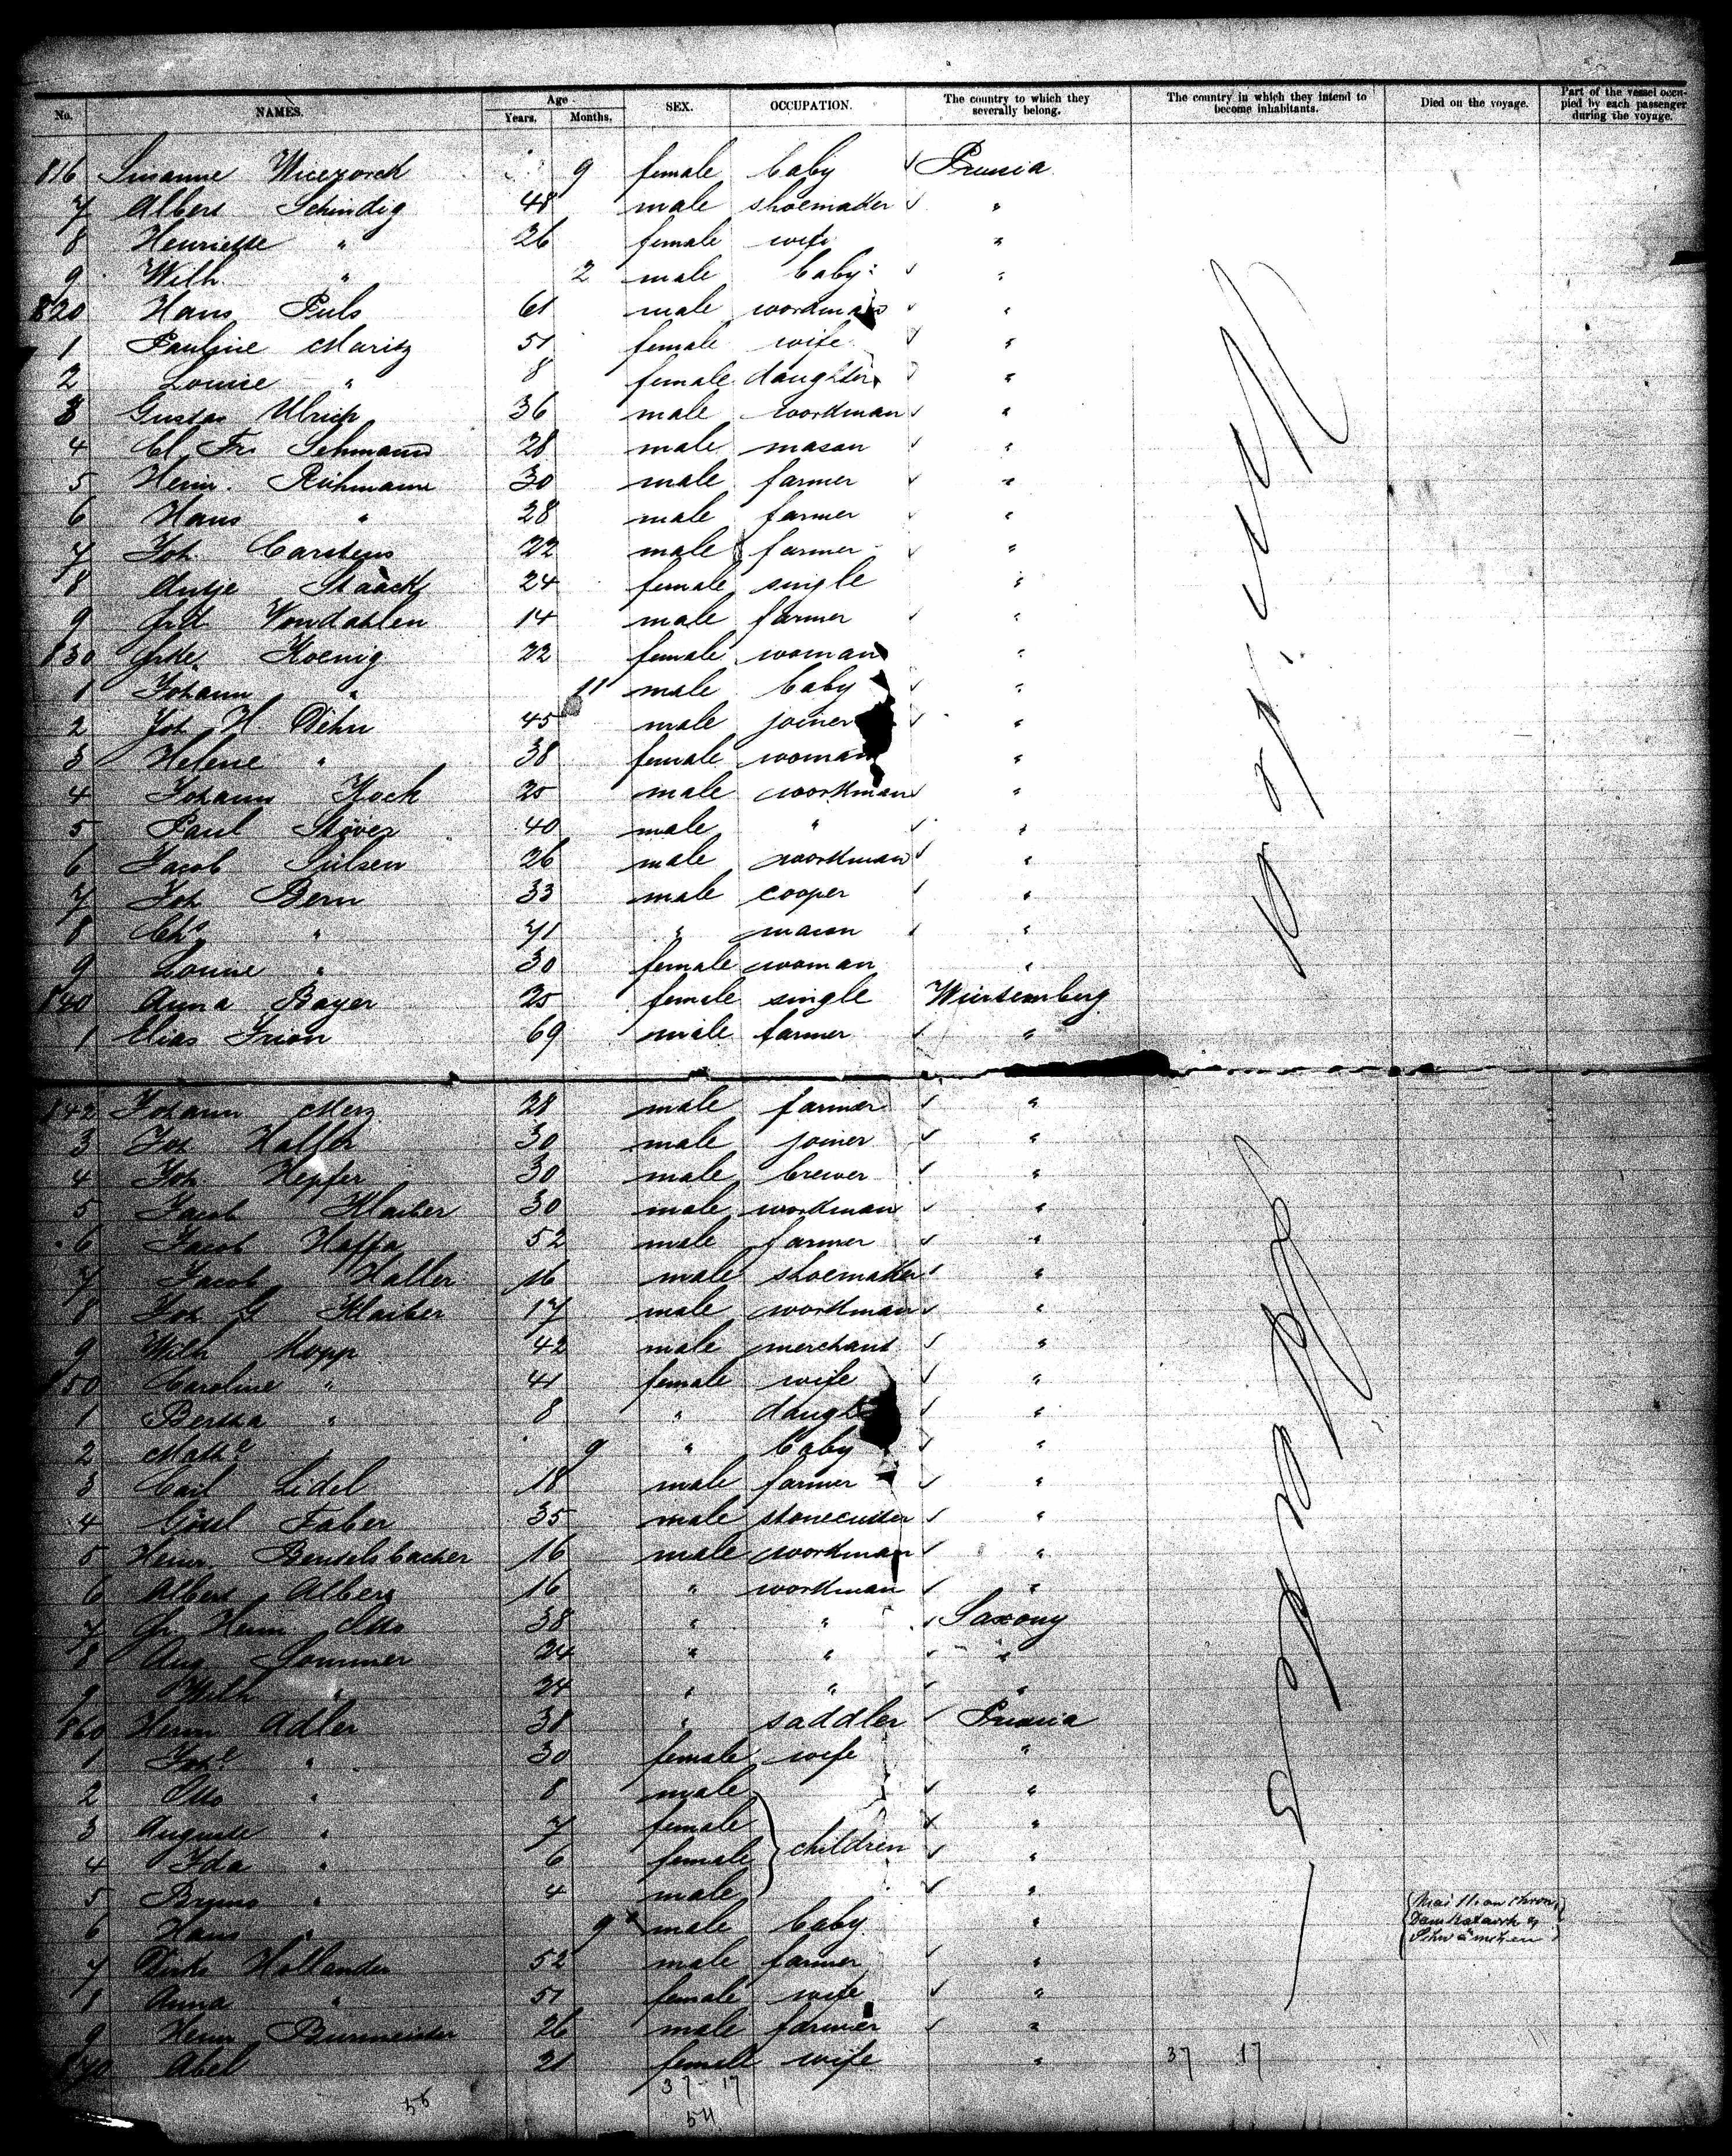 No. NAMES. Age Years. Months. SEX. OCCUPATION. The country to which they severally belong. The country in which they intend to become inhabitants. Died on the voyage. Part of the vessel occupied by each passenger during the voyage.
816 Susanne 9 female baby ✓ Prussia
7 Albert Schindig 48 male shoemaker ✓ "
8 Henriette " 26 female wife "
9 Wilh. " 2 male baby ✓ "
820 Hans Puls 61 male workman ✓ "
1 Pauline Moritz 51 female wife ✓ "
2 Louise " 8 female daughter ✓ "
3 Gustav Ulrich 36 male workman ✓ "
4 Cl. Fr. Lehmann 28 male mason ✓ "
5 Heinr. Rühmann 30 male farmer ✓ "
6 Hans " 28 male farmer ✓ "
7 Joh. Carstens 22 male farmer ✓ "
8 Antje Staack 24 female single "
9 Frd. Vondahlen 14 male farmer ✓ "
830 Frke. Koenig 22 female woman "
1 Johann " 11 male baby ✓ "
2 Joh. H. Dehn 45 male joiner ✓ "
3 Helene " 38 female woman "
4 Johann Koch 25 male workman ✓ "
5 Paul Stöver 40 male " ✓ "
6 Jacob Sülsen 26 male workman ✓ "
7 Joh. Bern 33 male cooper ✓ "
8 Chs. " 71 " mason ✓ "
9 Louise " 30 female woman "
840 Anna Bayer 25 female single Würtemberg
1 Elias Irion 69 male farmer ✓ "
842 Johann Merz 28 male farmer ✓ "
3 Joh. Haller 30 male joiner ✓ "
4 Joh. Hepfer 30 male brewer ✓ "
5 Jacob Klaiber 30 male workman ✓ "
6 Jacob Haffa 52 male farmer ✓ "
7 Jacob Haller 16 male shoemaker ✓ "
8 Joh. G. Klaiber 17 male workman ✓ "
9 Wilh. Kopp 42 male merchant ✓ "
850 Caroline " 41 female wife ✓ "
1 Bertha " 8 " daught ✓ "
2 Mathe. " 9 " baby ✓ "
3 Carl Lidel 18 male farmer ✓ "
4 Gottl Faber 35 male stonecutter ✓ "
5 Heinr. Beutelsbacher 16 male workman ✓ "
6 Albert Albers 16 " workman ✓ "
7 Fr. Heinr. Otto 38 " " ✓ Saxony
8 Aug. Sommer 24 " " ✓ "
9 Wilh. " 24 " " ✓ "
860 Herm Adler 38 " saddler ✓ Prussia
1 Johe. " 30 female wife "
2 Otto " 8 male ✓ "
3 Auguste " 7 female ✓ "
4 Ida " 6 female children ✓ "
5 Bruno " 4 male ✓ "
6 Hans " 9 male baby "
7 Dirks Hollander 52 male farmer ✓ "
8 Anna " 51 female wife ✓ "
9 Heinr Burmeister 26 male farmer ✓ "
870 Abel 21 female wife " 37 17
37 - 17
54